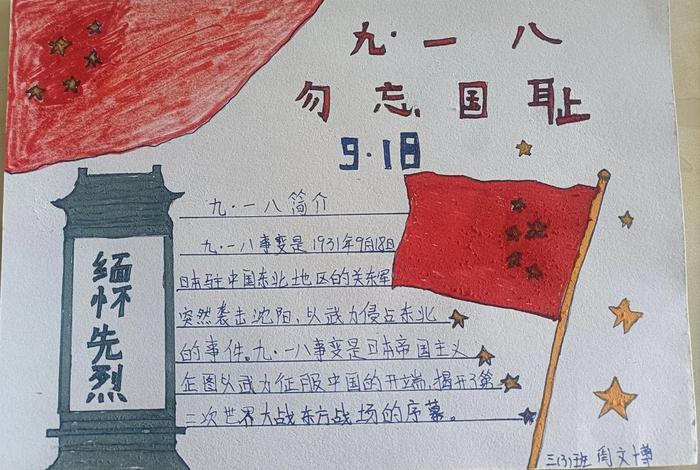 九·一八
勿忘国耻
9·18
缅怀先烈
九·一八简介
九·一八事变是1931年9月18日
日本驻中国东北地区的关东军
突然袭击沈阳,以武力侵占东北
的事件。九·一八事变是日本帝国主义
企图以武力征服中国的开端,揭开了第
二次世界大战东方战场的序幕。
三(3)班 周文博